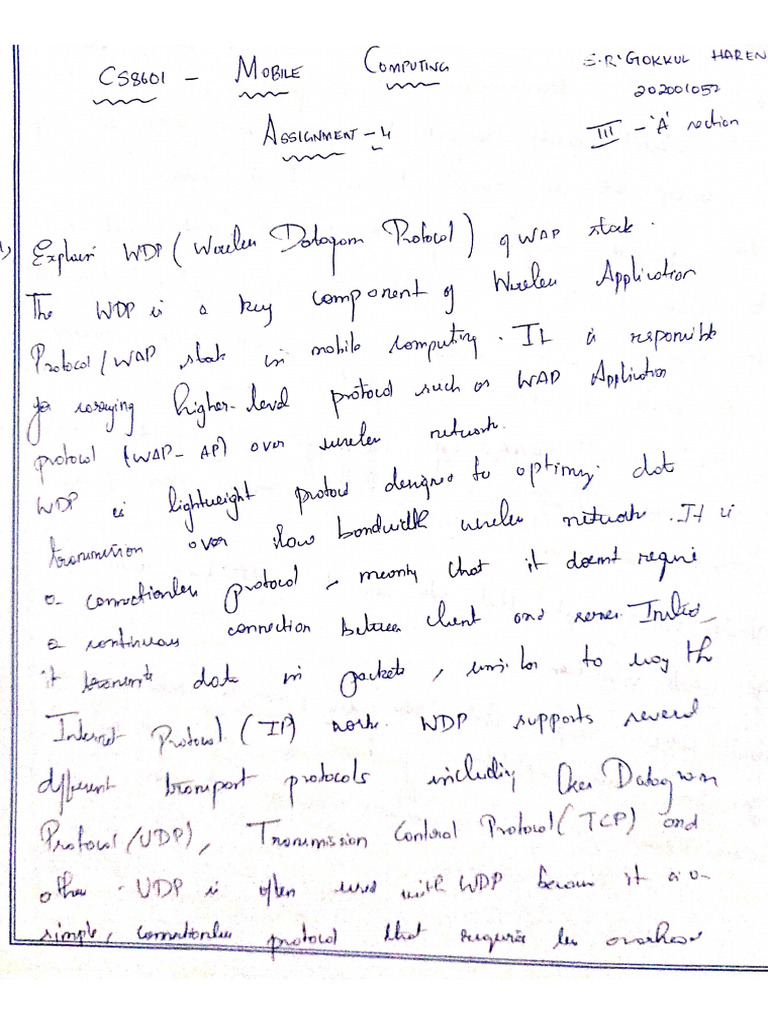 CS8601 - MOBILE COMPUTING
E.R. GOKKUL HAREN
202001057
ASSIGNMENT - 4
III - 'A' section
1) Explain WDP (Wireless Datagram Protocol) of WAP stack.
The WDP is a key component of Wireless Application
Protocol / WAP stack in mobile computing. It is responsible
for carrying higher-level protocol such as WAP Application
protocol (WAP-AP) over wireless network.
WDP is lightweight protocol designed to optimize data
transmission over slow bandwidth wireless network. It is
a connectionless protocol, meaning that it doesnt require
a continuous connection between client and server. Instead,
it transmits data in packets, similar to way the
Internet Protocol (IP) works. WDP supports several
different transport protocols including User Datagram
Protocol (UDP), Transmission Control Protocol (TCP) and
other. UDP is often used with WDP because it is a
simple, connectionless protocol that requires less overhead